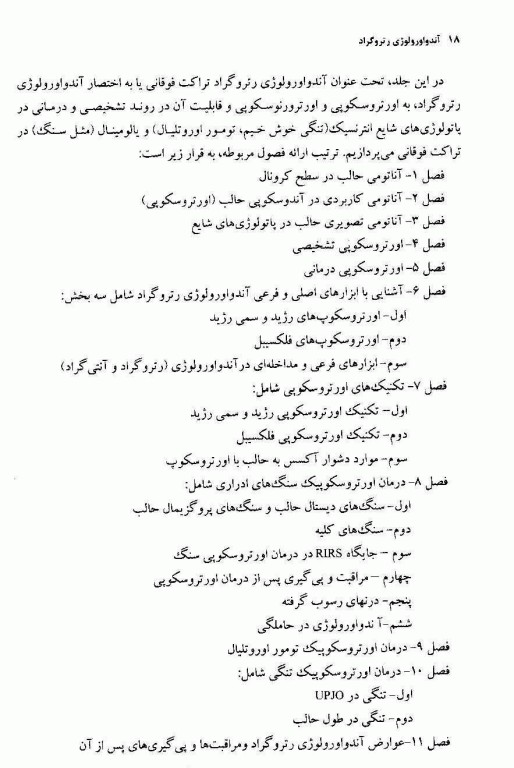 ۱۸ آندواورولوژی رتروگراد
در این جلد، تحت عنوان آندواورولوژی رتروگراد تراکت فوقانی یا به اختصار آندواورولوژی
رتروگراد، به اورتروسکوپی و اورترورنوسکوپی و قابلیت آن در روند تشخیصی و درمانی در
پاتولوژی‌های شایع انترنسیک(تنگی خوش خیم، تومور اوروتلیال) و یالومینال (مثل سنگ) در
تراکت فوقانی می‌پردازیم. ترتیب ارائه فصول مربوطه، به قرار زیر است:
فصل ۱- آناتومی حالب در سطح کرونال
فصل ۲- آناتومی کاربردی در آندوسکوپی حالب (اورتروسکوپی)
فصل ۳- آناتومی تصویری حالب در پاتولوژی‌های شایع
فصل ۴- اورتروسکوپی تشخیصی
فصل ۵- اورتروسکوپی درمانی
فصل ۶- آشنایی با ابزارهای اصلی و فرعی آندواورولوژی رتروگراد شامل سه بخش:
اول- اورتروسکوپ‌های رژید و سمی رژید
دوم- اورتروسکوپ‌های فلکسیبل
سوم- ابزارهای فرعی و مداخله‌ای درآندواورولوژی (رتروگراد و آنتی‌گراد)
فصل ۷- تکنیک‌های اورتروسکوپی شامل:
اول- تکنیک اورتروسکوپی رژید و سمی رژید
دوم- تکنیک اورتروسکوپی فلکسیبل
سوم- موارد دشوار آکسس به حالب با اورتروسکوپ
فصل ۸- درمان اورتروسکوپیک سنگ‌های ادراری شامل:
اول- سنگ‌های دیستال حالب و سنگ‌های پروگزیمال حالب
دوم- سنگ‌های کلیه
سوم – جایگاه RIRS در درمان اورتروسکوپی سنگ
چهارم – مراقبت و پی‌گیری پس از درمان اورتروسکوپی
پنجم- درنهای رسوب گرفته
ششم-آ ندواورولوژی در حاملگی
فصل ۹- درمان اورتروسکوپیک تومور اوروتلیال
فصل ۱۰- درمان اورتروسکوپیک تنگی شامل:
اول- تنگی در UPJO
دوم- تنگی در طول حالب
فصل ۱۱-عوارض آندواورولوژی رتروگراد ومراقبت‌ها و پی‌گیری‌های پس از آن